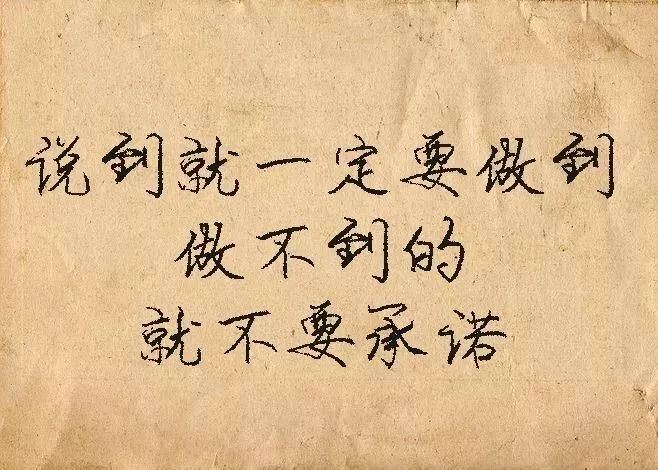 说到就一定要做到
做不到的
就不要承诺